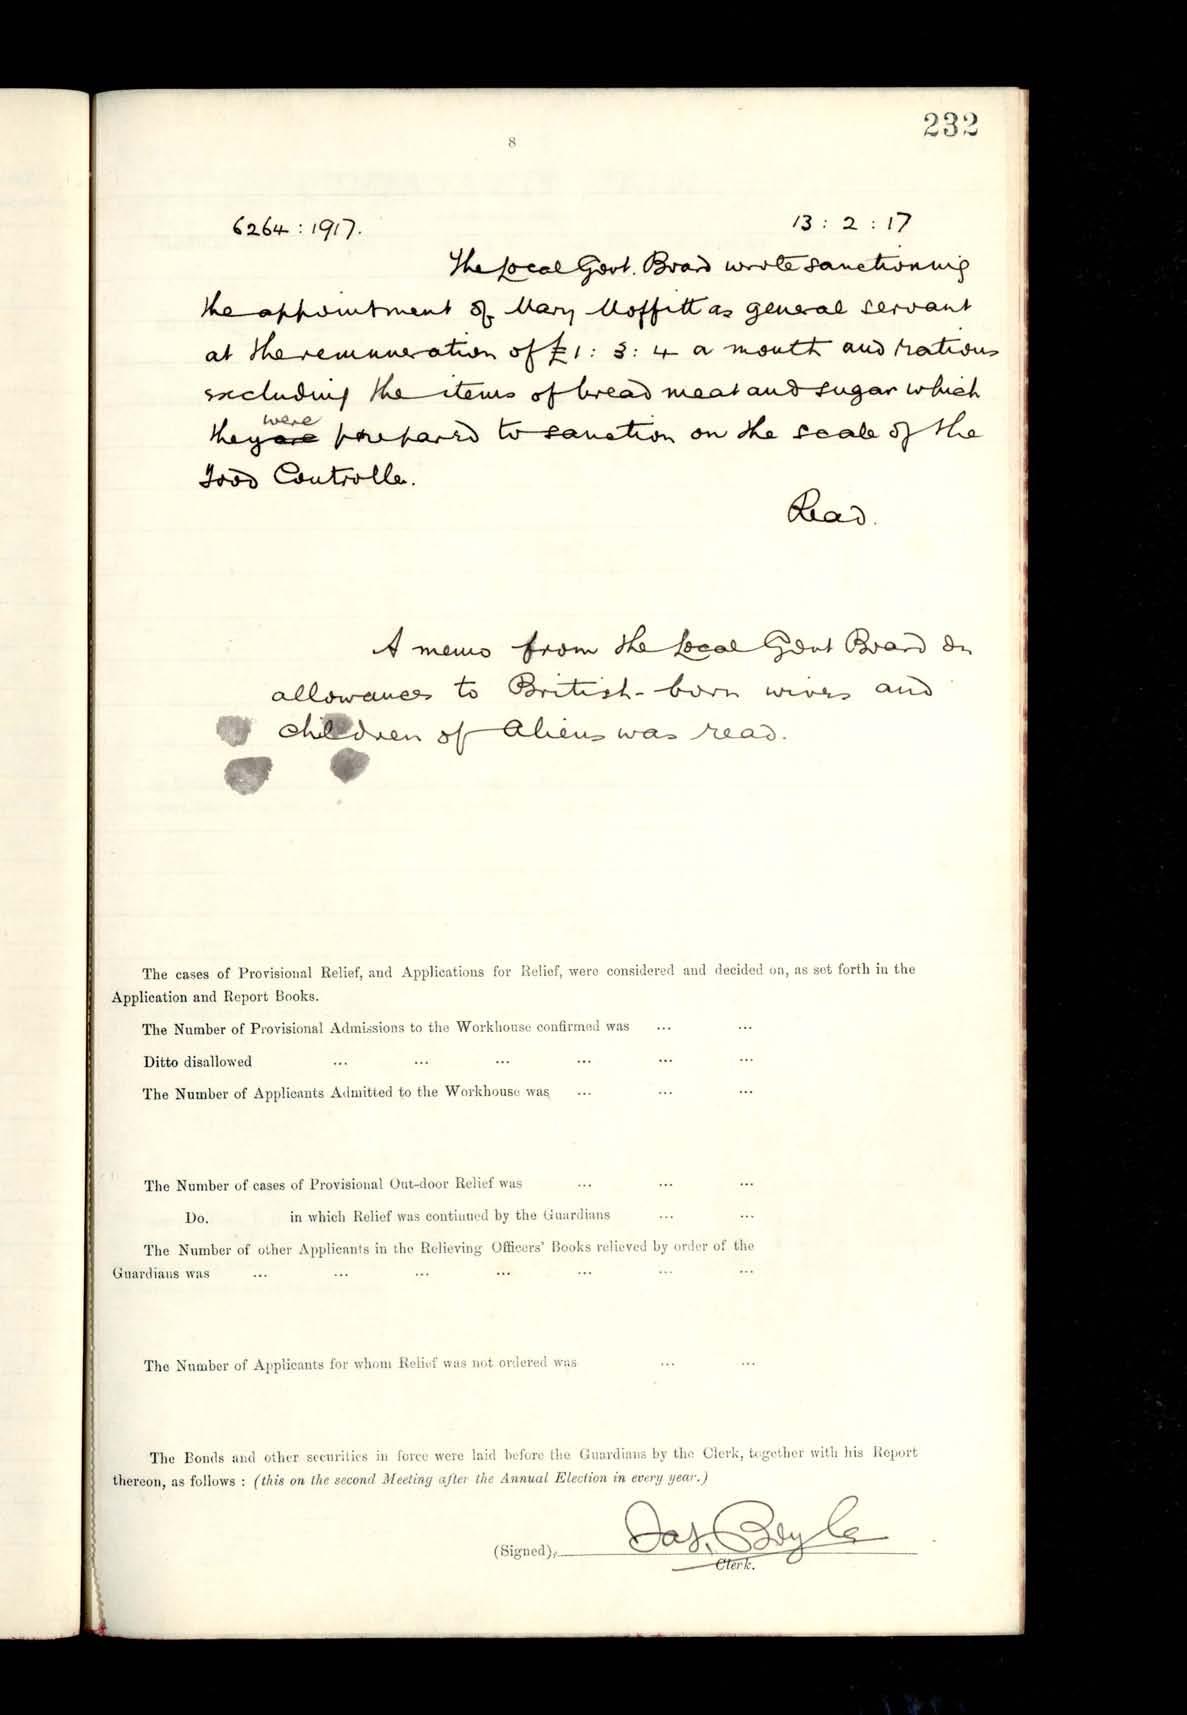 232
8
6264 : 1917. 13 : 2 : 17
The Local Govt. Board wrote sanctioning
the appointment of Mary Moffitt as general servant
at the remuneration of £1 : 3 : 4 a month and rations
excluding the items of bread meat and sugar which
were
they are prepared to sanction on the scale of the
Food Controller.
Read.
A memo from the Local Govt Board on
allowances to British-born wives and
children of Aliens was read.
The cases of Provisional Relief, and Applications for Relief, were considered and decided on, as set forth in the
Application and Report Books.
The Number of Provisional Admissions to the Workhouse confirmed was ... ...
Ditto disallowed ... ... ... ... ... ...
The Number of Applicants Admitted to the Workhouse was ... ... ...
The Number of cases of Provisional Out-door Relief was ... ... ...
Do. in which Relief was continued by the Guardians ... ...
The Number of other Applicants in the Relieving Officers' Books relieved by order of the
Guardians was ... ... ... ... ... ... ...
The Number of Applicants for whom Relief was not ordered was ... ...
The Bonds and other securities in force were laid before the Guardians by the Clerk, together with his Report
thereon, as follows : (this on the second Meeting after the Annual Election in every year.)
(Signed), Jas. Boyle
Clerk.